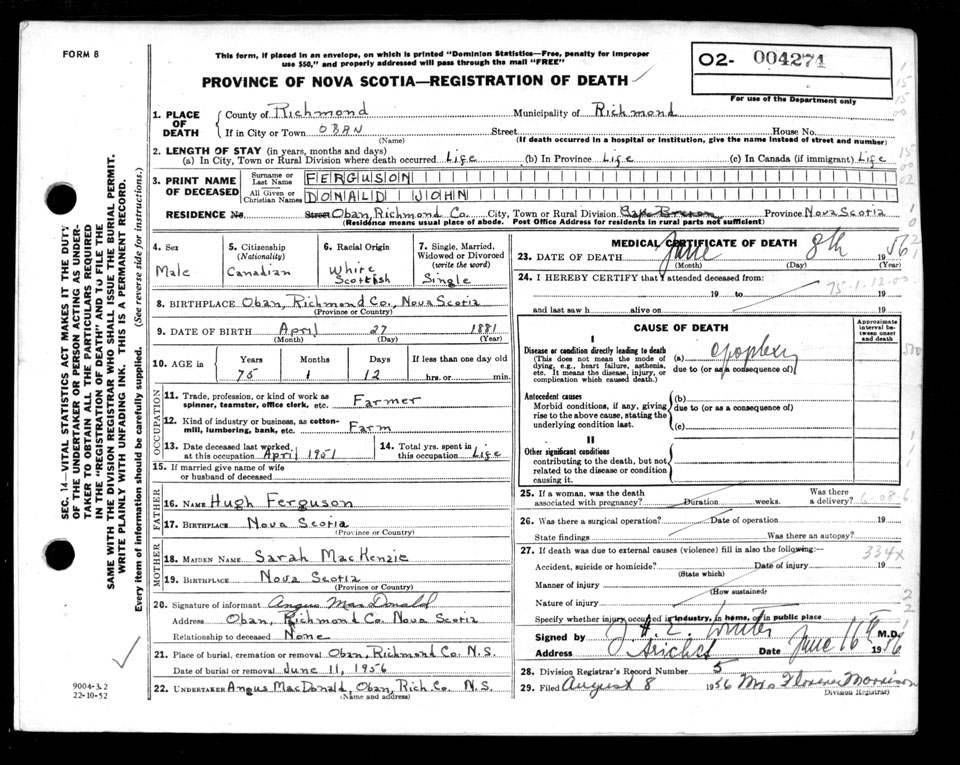 FORM 8
This form, if placed in an envelope, on which is printed "Dominion Statistics—Free, penalty for improper
use $50," and properly addressed will pass through the mail "FREE"
PROVINCE OF NOVA SCOTIA—REGISTRATION OF DEATH
O2- 004274
For use of the Department only
SEC. 14—VITAL STATISTICS ACT MAKES IT THE DUTY
OF THE UNDERTAKER OR PERSON ACTING AS UNDER-
TAKER TO OBTAIN ALL THE PARTICULARS REQUIRED
IN THE "REGISTRATION OF DEATH" AND TO FILE THE
SAME WITH THE DIVISION REGISTRAR WHO SHALL ISSUE THE BURIAL PERMIT.
WRITE PLAINLY WITH UNFADING INK. THIS IS A PERMANENT RECORD.
Every item of information should be carefully supplied. (See reverse side for instructions.)
1. PLACE OF DEATH
County of Richmond Municipality of Richmond
If in City or Town OBAN Street House No.
(Name) (If death occurred in a hospital or institution, give the name instead of street and number)
2. LENGTH OF STAY (in years, months and days)
(a) In City, Town or Rural Division where death occurred Life (b) In Province Life (c) In Canada (if immigrant) Life
3. PRINT NAME OF DECEASED
Surname or Last Name FERGUSON
All Given or Christian Names DONALD JOHN
RESIDENCE No. Street Oban, Richmond Co. City, Town or Rural Division Cape Breton Province Nova Scotia
(Residence means usual place of abode. Post Office Address for residents in rural parts not sufficient)
4. Sex
Male
5. Citizenship
(Nationality)
Canadian
6. Racial Origin
White
Scottish
7. Single, Married,
Widowed or Divorced
(write the word)
Single
8. BIRTHPLACE Oban, Richmond Co., Nova Scotia
(Province or Country)
9. DATE OF BIRTH April 27 1881
(Month) (Day) (Year)
10. AGE in Years Months Days If less than one day old
75 1 12 hrs. or min.
OCCUPATION
11. Trade, profession, or kind of work as
spinner, teamster, office clerk, etc. Farmer
12. Kind of industry or business, as cotton-
mill, lumbering, bank, etc. Farm
13. Date deceased last worked
at this occupation April 1951
14. Total yrs. spent in
this occupation Life
15. If married give name of wife
or husband of deceased
FATHER
16. NAME Hugh Ferguson
17. BIRTHPLACE Nova Scotia
(Province or Country)
MOTHER
18. MAIDEN NAME Sarah MacKenzie
19. BIRTHPLACE Nova Scotia
(Province or Country)
20. Signature of informant Angus MacDonald
Address Oban, Richmond Co. Nova Scotia
Relationship to deceased None
21. Place of burial, cremation or removal Oban, Richmond Co. N.S.
Date of burial or removal June 11, 1956
22. UNDERTAKER Angus MacDonald, Oban, Rich. Co. N.S.
(Name and address)
9004-3.2
22-10-52
MEDICAL CERTIFICATE OF DEATH
23. DATE OF DEATH June 8th 1956
(Month) (Day) (Year)
24. I HEREBY CERTIFY that I attended deceased from:
19 to 19
75-1-12-00
and last saw h alive on 19
CAUSE OF DEATH
Approximate
interval be-
tween onset
and death
I
Disease or condition directly leading to death
(This does not mean the mode of
dying, e.g., heart failure, asthenia,
etc. It means the disease, injury, or
complication which caused death.)
(a) Apoplexy
due to (or as a consequence of)
Antecedent causes
Morbid conditions, if any, giving
rise to the above cause, stating the
underlying condition last.
(b)
due to (or as a consequence of)
(c)
II
Other significant conditions
contributing to the death, but not
related to the disease or condition
causing it.
25. If a woman, was the death
associated with pregnancy? Duration weeks. Was there
a delivery?
6-08-6
26. Was there a surgical operation? Date of operation 19
State findings Was there an autopsy?
27. If death was due to external causes (violence) fill in also the following:
334x
Accident, suicide or homicide? Date of injury 19
(State which)
Manner of injury
(How sustained)
Nature of injury
Specify whether injury occurred in industry, in home, or in public place
Signed by M.D.
Address Arichat Date June 16th 1956
28. Division Registrar's Record Number 5
29. Filed August 8 1956 Mrs Florence Morrison
Division Registrar)